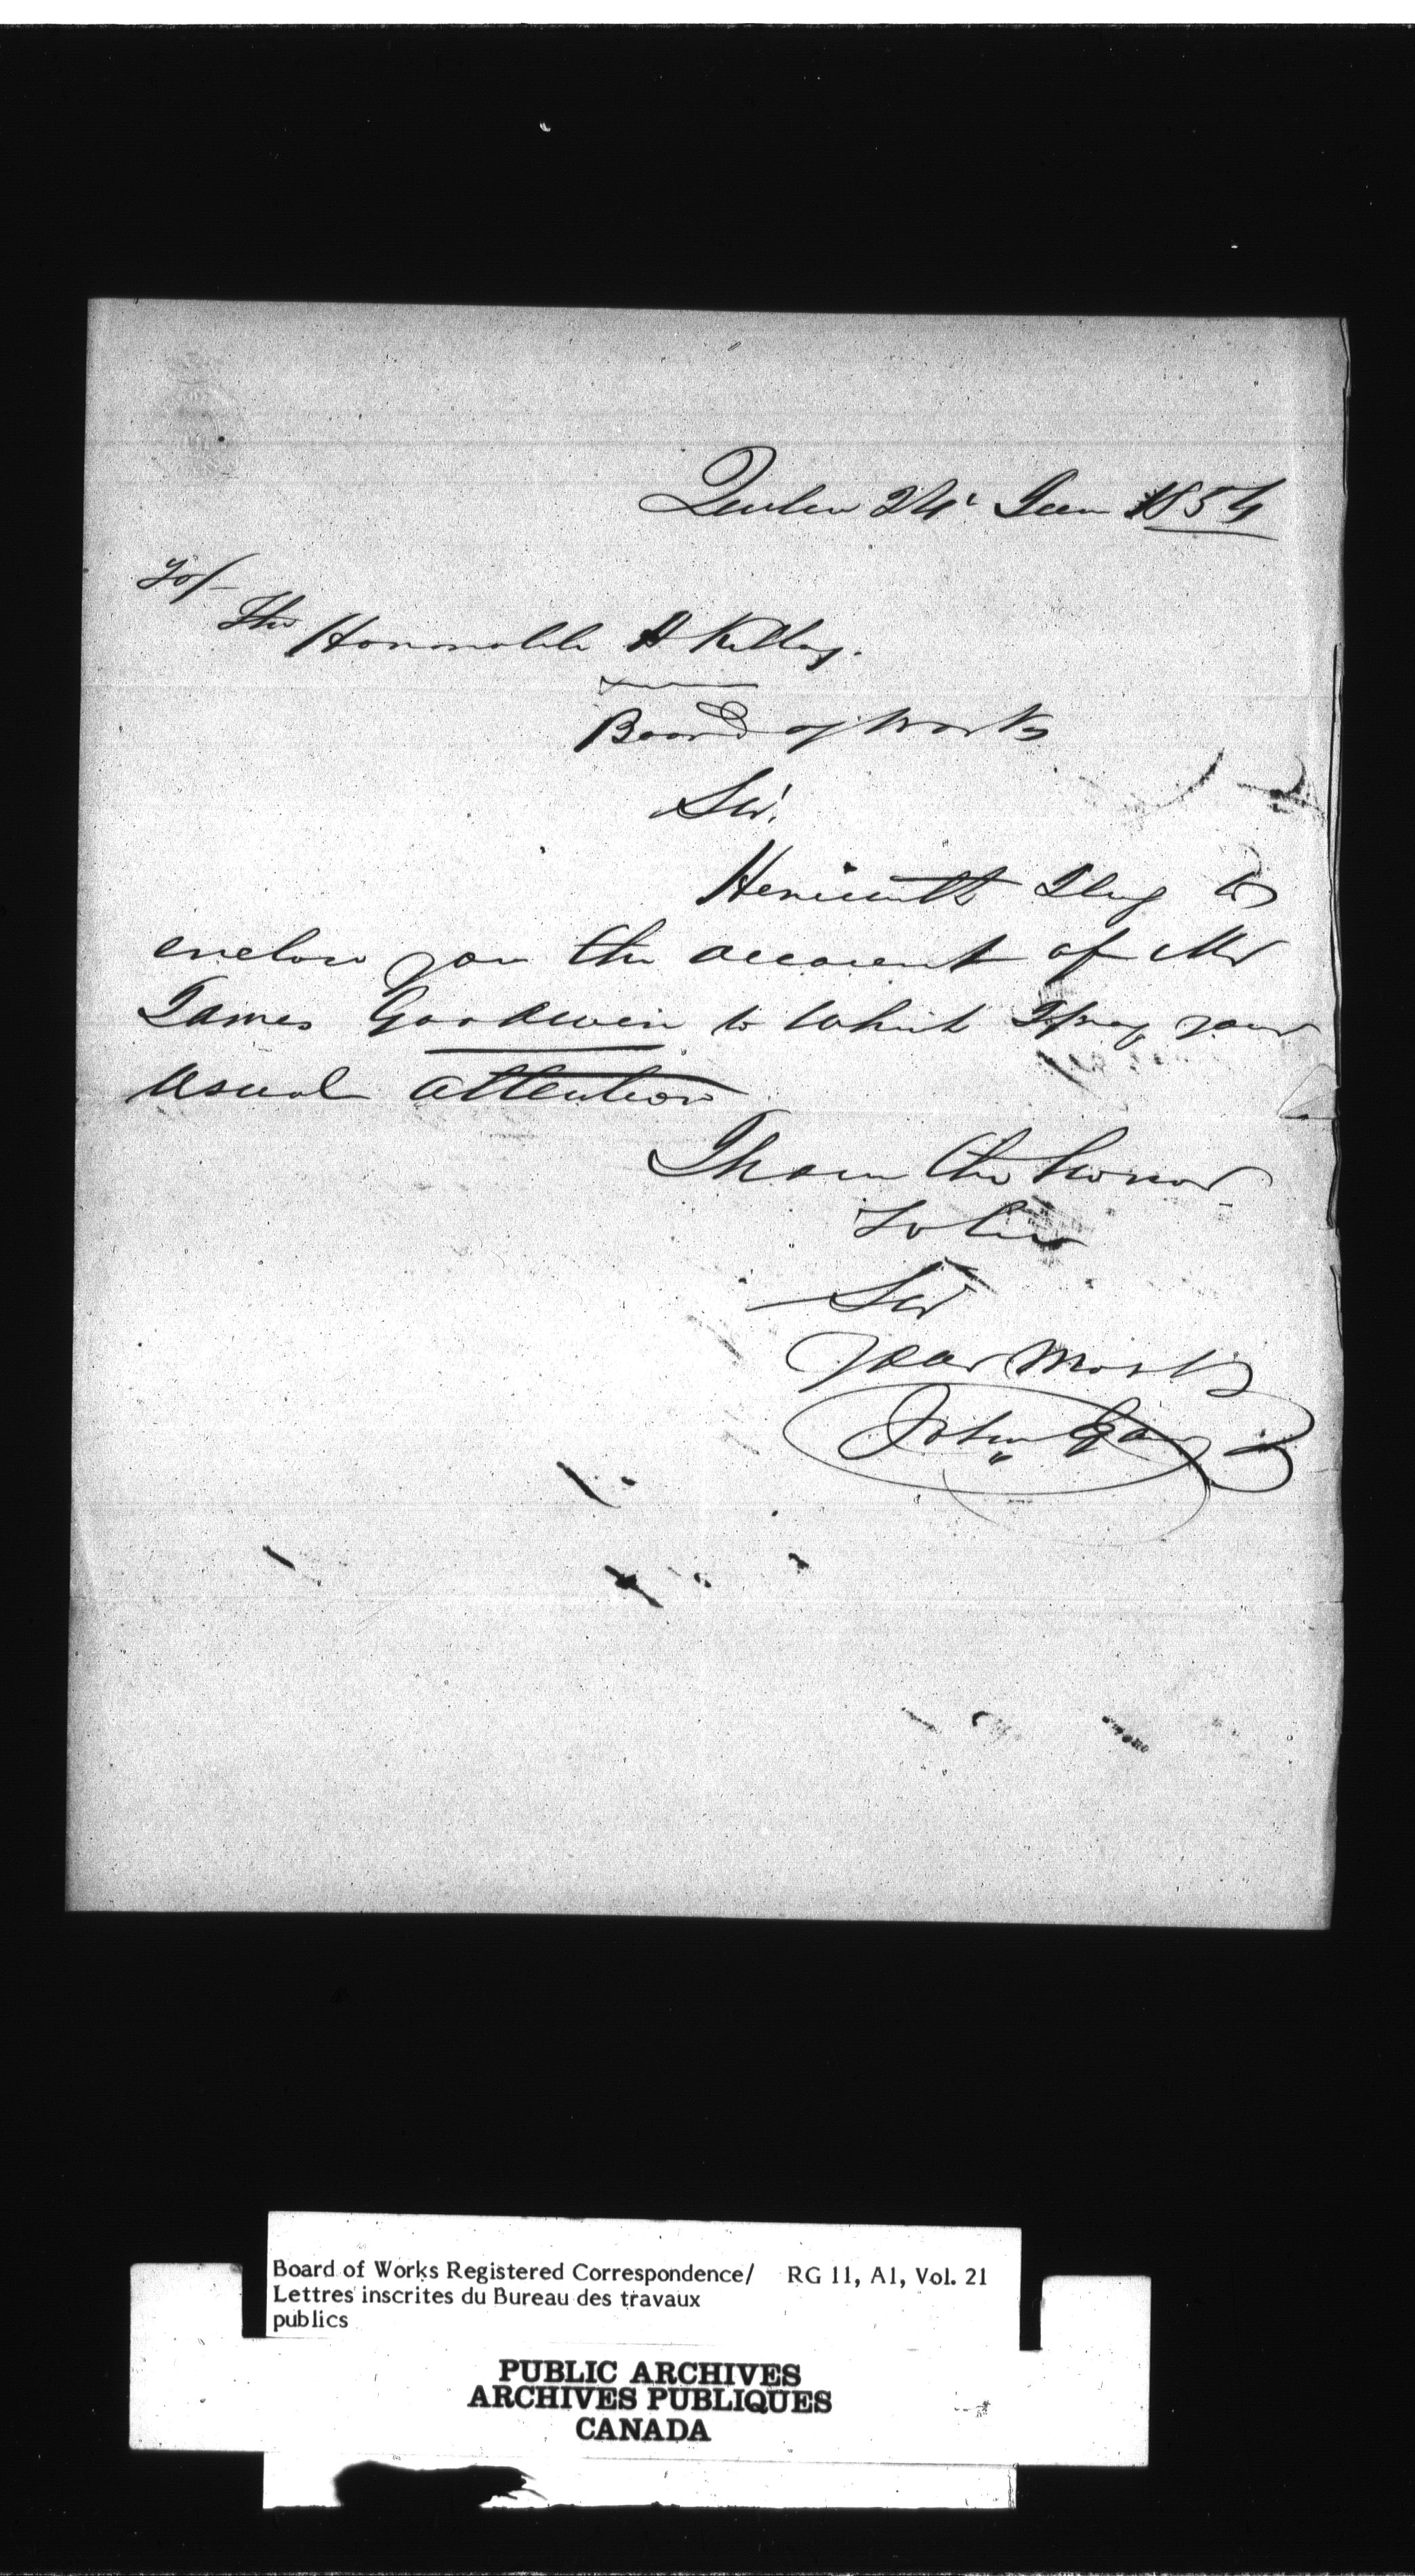 Quebec 24' Jan 1854
To/-
The Honorable H Killaly.
Board of Works
Sir.
Herewith I beg to
enclose you the account of Mr
James Goodwin to which I pray your
usual attention
I have the honor
to be
Sir
Your Most
John
Board of Works Registered Correspondence/ RG 11, A1, Vol. 21
Lettres inscrites du Bureau des travaux
publics
PUBLIC ARCHIVES
ARCHIVES PUBLIQUES
CANADA